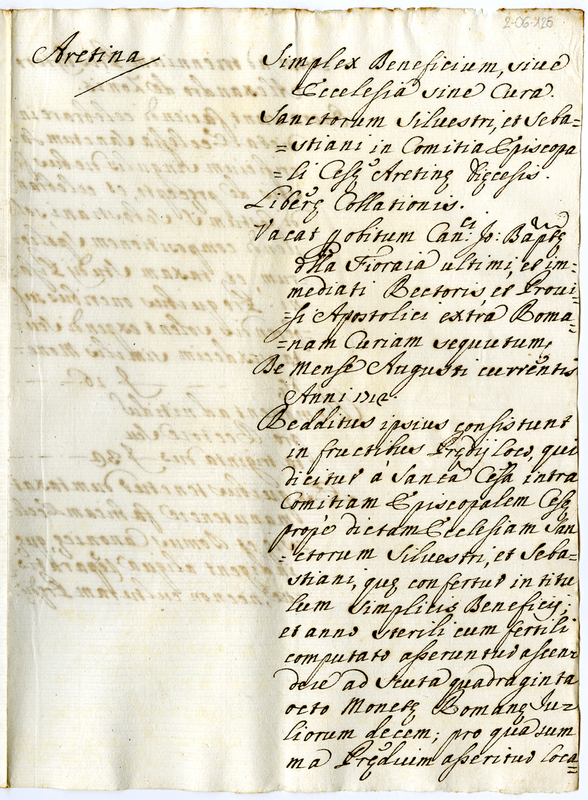 2-06-125
Aretina
Simplex Beneficium, siue
Ecclesia sine Cura.
Sanctorum Siluestri, et Seba=
=stiani in Comitia Episcopa
=li Cesę Aretinę Dięcesis.
Liberę Collationis.
Vacat p obitum Can.ci Jo: Baptę
dlla Fioraia ultimi, et im=
mediati Rectoris, et Proui=
=si Apostolici extra Roma=
=nam Curiam sequutum,
De Mense Augusti currentis
Anni 1712.
Redditus ipsius consistunt
in fructibus Prędij loco, qui
dicitur à Santa Cesa intra
Comitiam Episcopalem Cesę
propè dictam Ecclesiam San
=ctorum Siluestri, et Seba=
stiani, quę confertur in titu
lum simplicis Beneficij;
et anno sterili cum fertili
computato asseruntur ascen
dere ad Scuta quadraginta
octo Monetę Romanę Ju=
liorum decem; pro qua sum
ma Prędium asseritur loca=